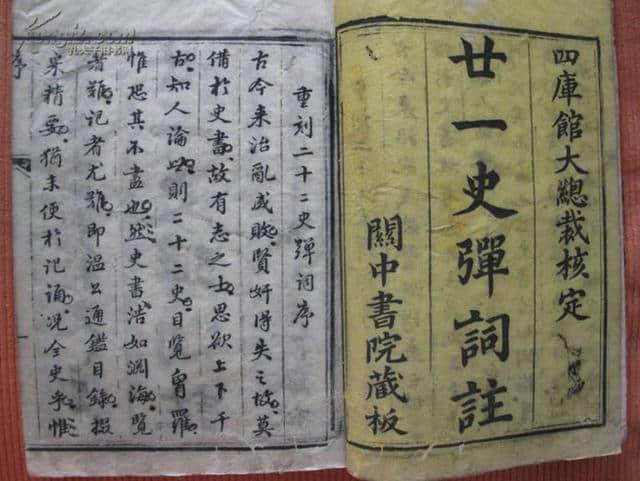 四庫館大總裁核定
廿一史彈詞註
關中書院藏板
重刻二十二史彈詞序
古今来治亂成敗賢奸得失之故莫
備於史書故有志之士思欲上下千
古知人論世則二十二史目覧胷羅
惟恐其不盡也然史書浩如淵海覧
者難記者尤難即温公通鑑目錄撮
其精要猶未便於記誦况全史乎惟
序